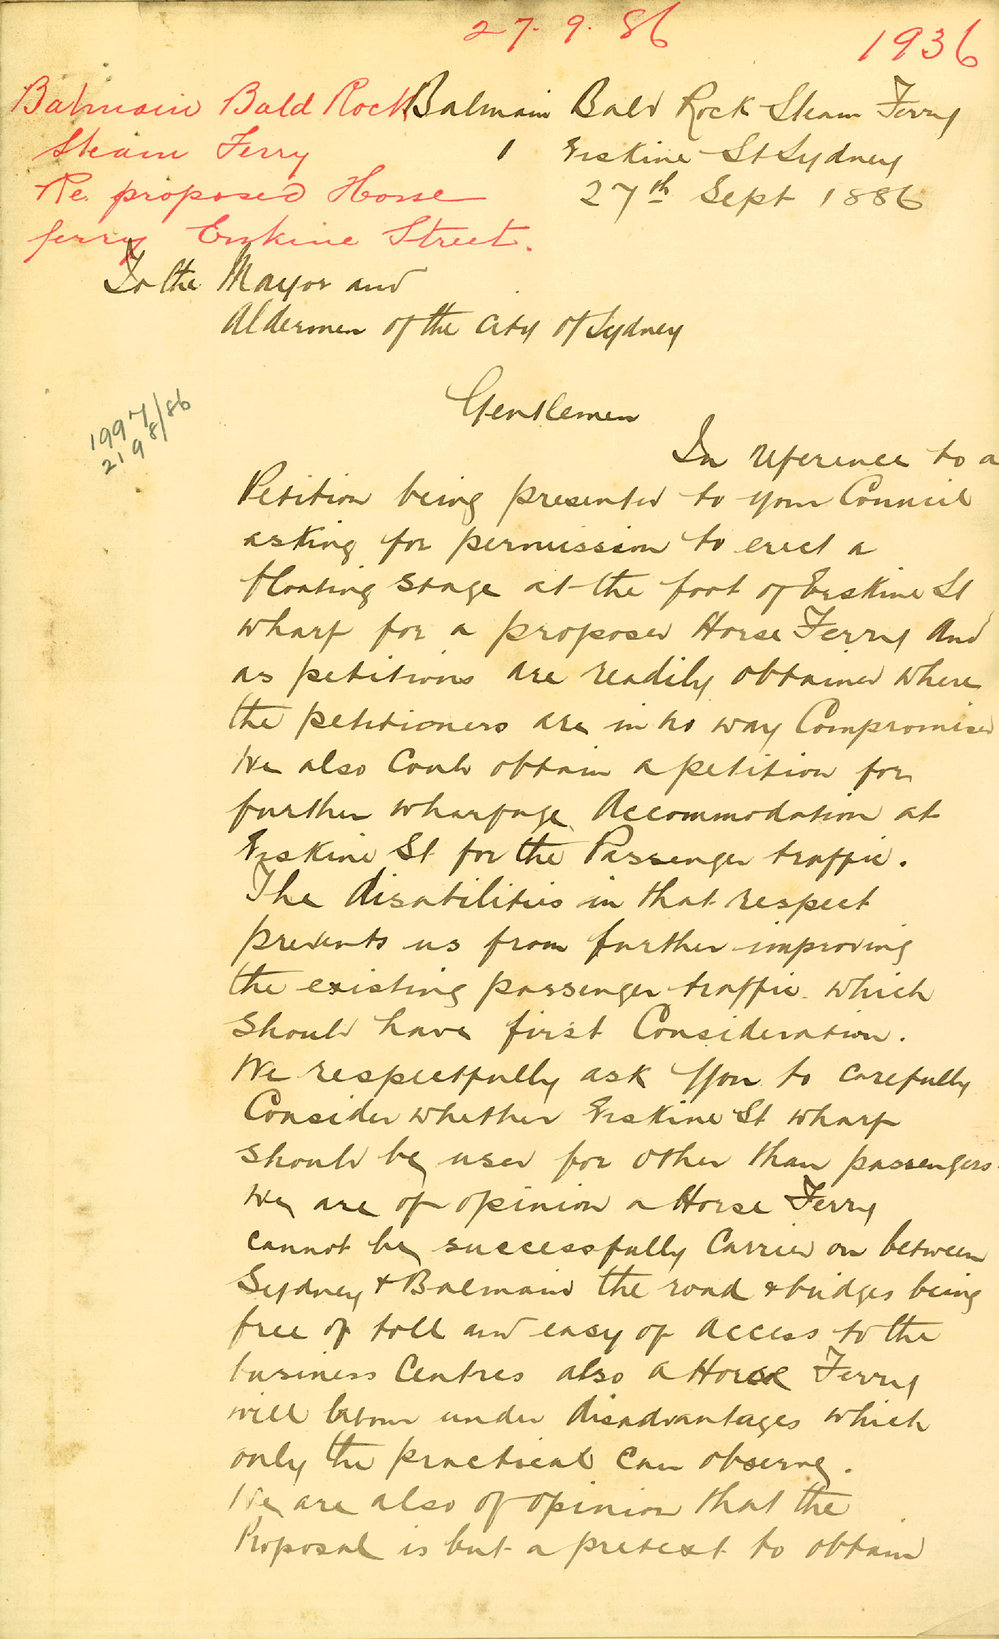 27. 9. 86
1936
Balmain Bald Rock
Steam Ferry
Re. proposed Horse
ferry Erskine Street.
Balmain Bald Rock Steam Ferry
1 Erskine St Sydney
27th Sept 1886
To the Mayor and
Aldermen of the City of Sydney
1997/86
2198/86
Gentlemen
In reference to a
Petition being presented to your Council
asking for permission to erect a
floating stage at the foot of Erskine St
wharf for a proposed Horse Ferry And
as petitions are readily obtained where
the petitioners are in no way Compromised
We also Could obtain a petition for
further wharfage Accommodation at
Erskine St for the Passenger traffic.
The disabilities in that respect
prevents us from further improving
the existing passenger traffic which
should have first Consideration.
We respectfully ask You to carefully
Consider whether Erskine St wharf
should be used for other than passengers.
We are of opinion a Horse Ferry
cannot be successfully Carried on between
Sydney & Balmain the road & bridges being
free of toll and easy of access to the
business Centres also a Horse Ferry
will labour under disadvantages which
only the practical can observe.
We are also of opinion that the
Proposal is but a pretext to obtain